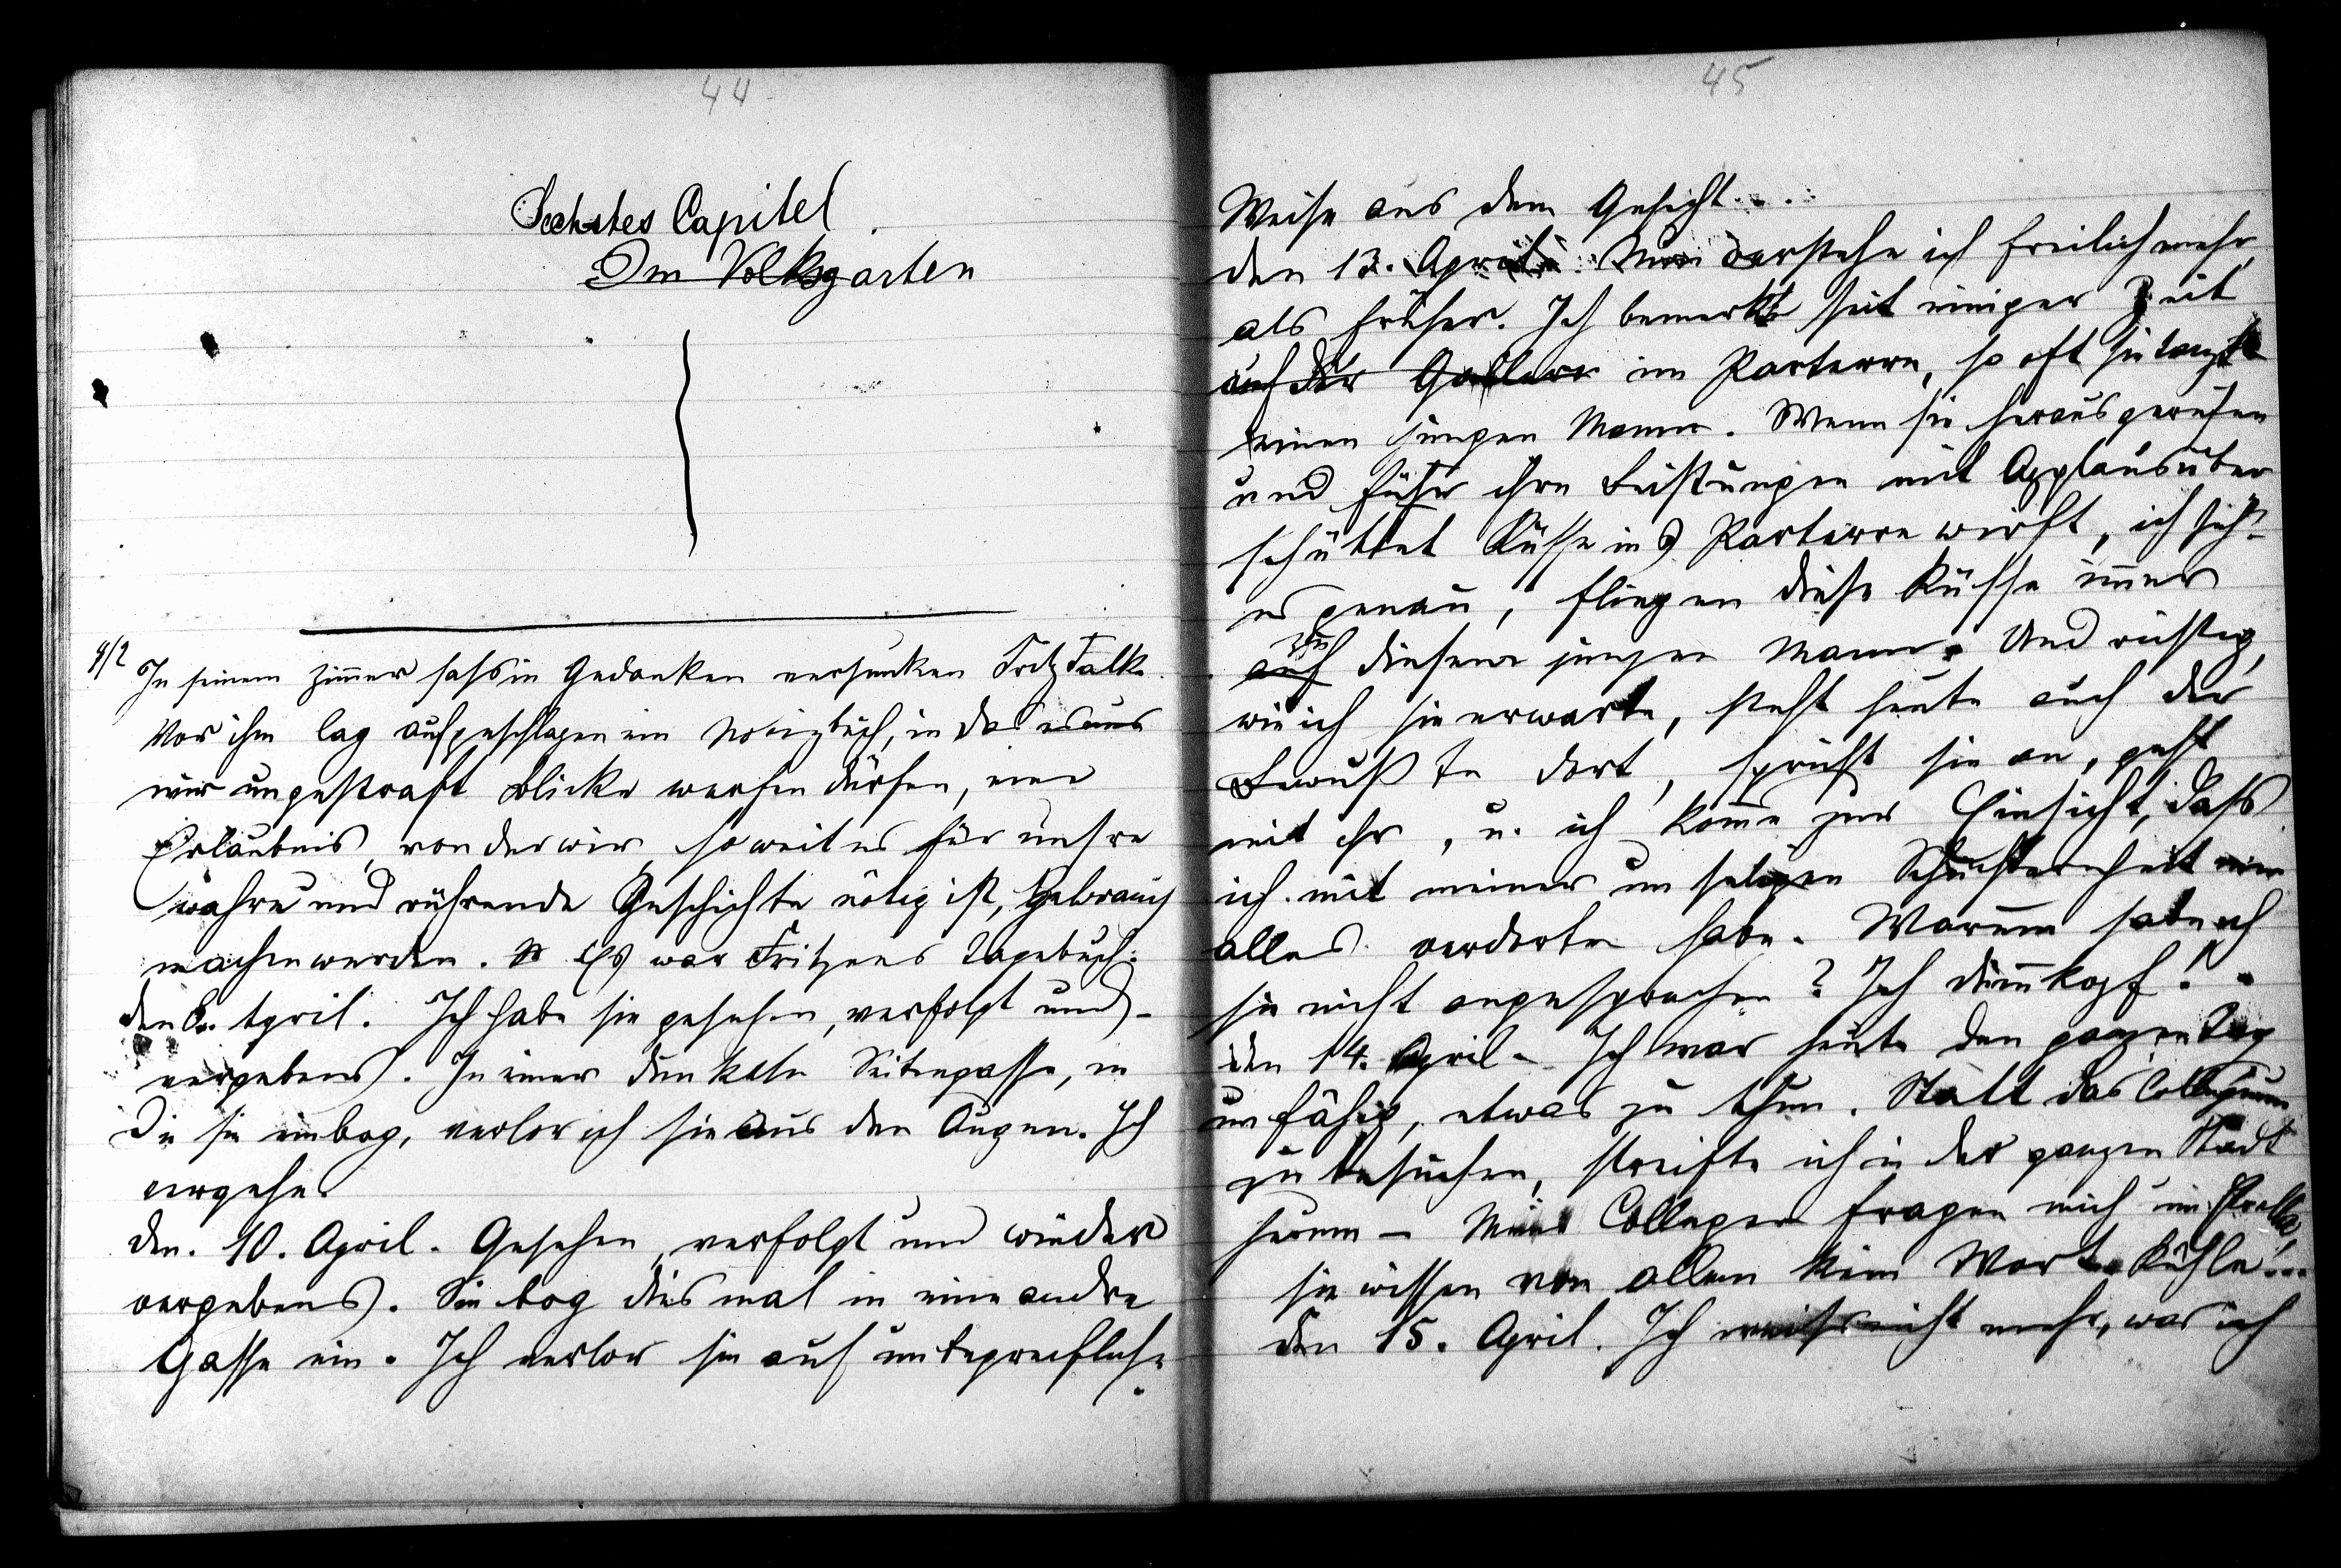 44
Sechstes Capitel.
Im Volksgarten
9/2 In seinem Zimmer saß in Gedanken versunken Fritz Falk.
Vor ihm lag aufgeschlagen ein Notizbuch, in das es uns
wir ungestraft Blicke werfen dürfen, eine
Erlaubnis, von der wir, soweit es für unsre
wahre und rührende Geschichte nötig ist, Gebrauch
machen werden. Es war Fritzens Tagebuch:
den 8. April. Ich habe sie gesehen, verfolgt und –
vergebens. In einer dunkeln Seitengasse, in
die sie einbog, verlor ich sie aus den Augen. Ich
vergehe.
den. 10. April. Gesehen, verfolgt und wieder
vergebens. Sie bog diesmal in eine andre
Gasse ein. Ich verlor sie auf unbegreifliche
45
Weise aus dem Gesicht....
den 13. April. Nun verstehe ich freilich mehr,
als früher. Ich bemerkte seit einiger Zeit
auf der Gallerie im Parterre, so oft sie tanzte
einen jungen Mann. Wenn sie herausgerufen
und für ihre Leistungen mit Applaus über
schüttet Küsse ins Parterre wirft, ich seh'
es genau, fliegen diese Küsse immer
zu
auf diesem jungen Mann. Und richtig,
wie ich sie erwarte, steht heute auch der
Bewußte dort, spricht sie an, geht
mit ihr, u. ich komme zur Einsicht, daß
ich mit meiner unseligen Schüchternheit mir
alles verdorben habe. Warum hab ich
sie nicht angesprochen? Ich Dummkopf!
den 14. April – Ich war heute den ganzen Tag
unfähig, etwas zu thun. Statt das Collegium
zu besuchen, streifte ich in der ganzen Stadt
herum – Meine Collegen fragen mich um
sie wissen von allem kein Wort. Kühle!...
den 15. April. Ich weiß nicht mehr, was ich